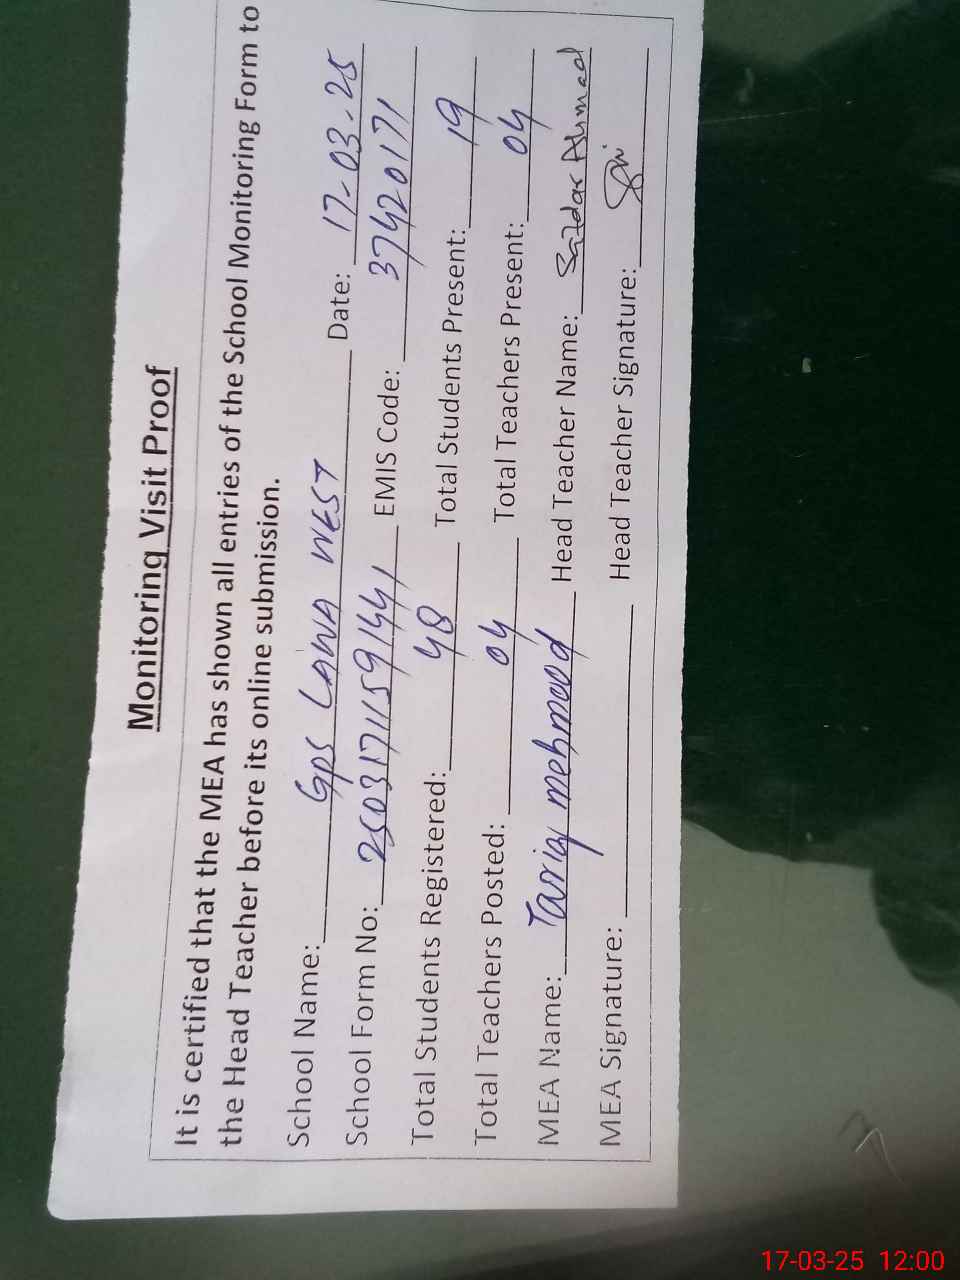 Monitoring Visit Proof
It is certified that the MEA has shown all entries of the School Monitoring Form to
the Head Teacher before its online submission.
School Name: GPS LAWA WEST Date: 17-03-25
School Form No: 25031711591441 EMIS Code: 37420171
Total Students Registered: 48 Total Students Present: 19
Total Teachers Posted: 04 Total Teachers Present: 04
MEA Name: Tariq mehmood Head Teacher Name: Safdar Ahmad
MEA Signature: Head Teacher Signature:
17-03-25 12:00